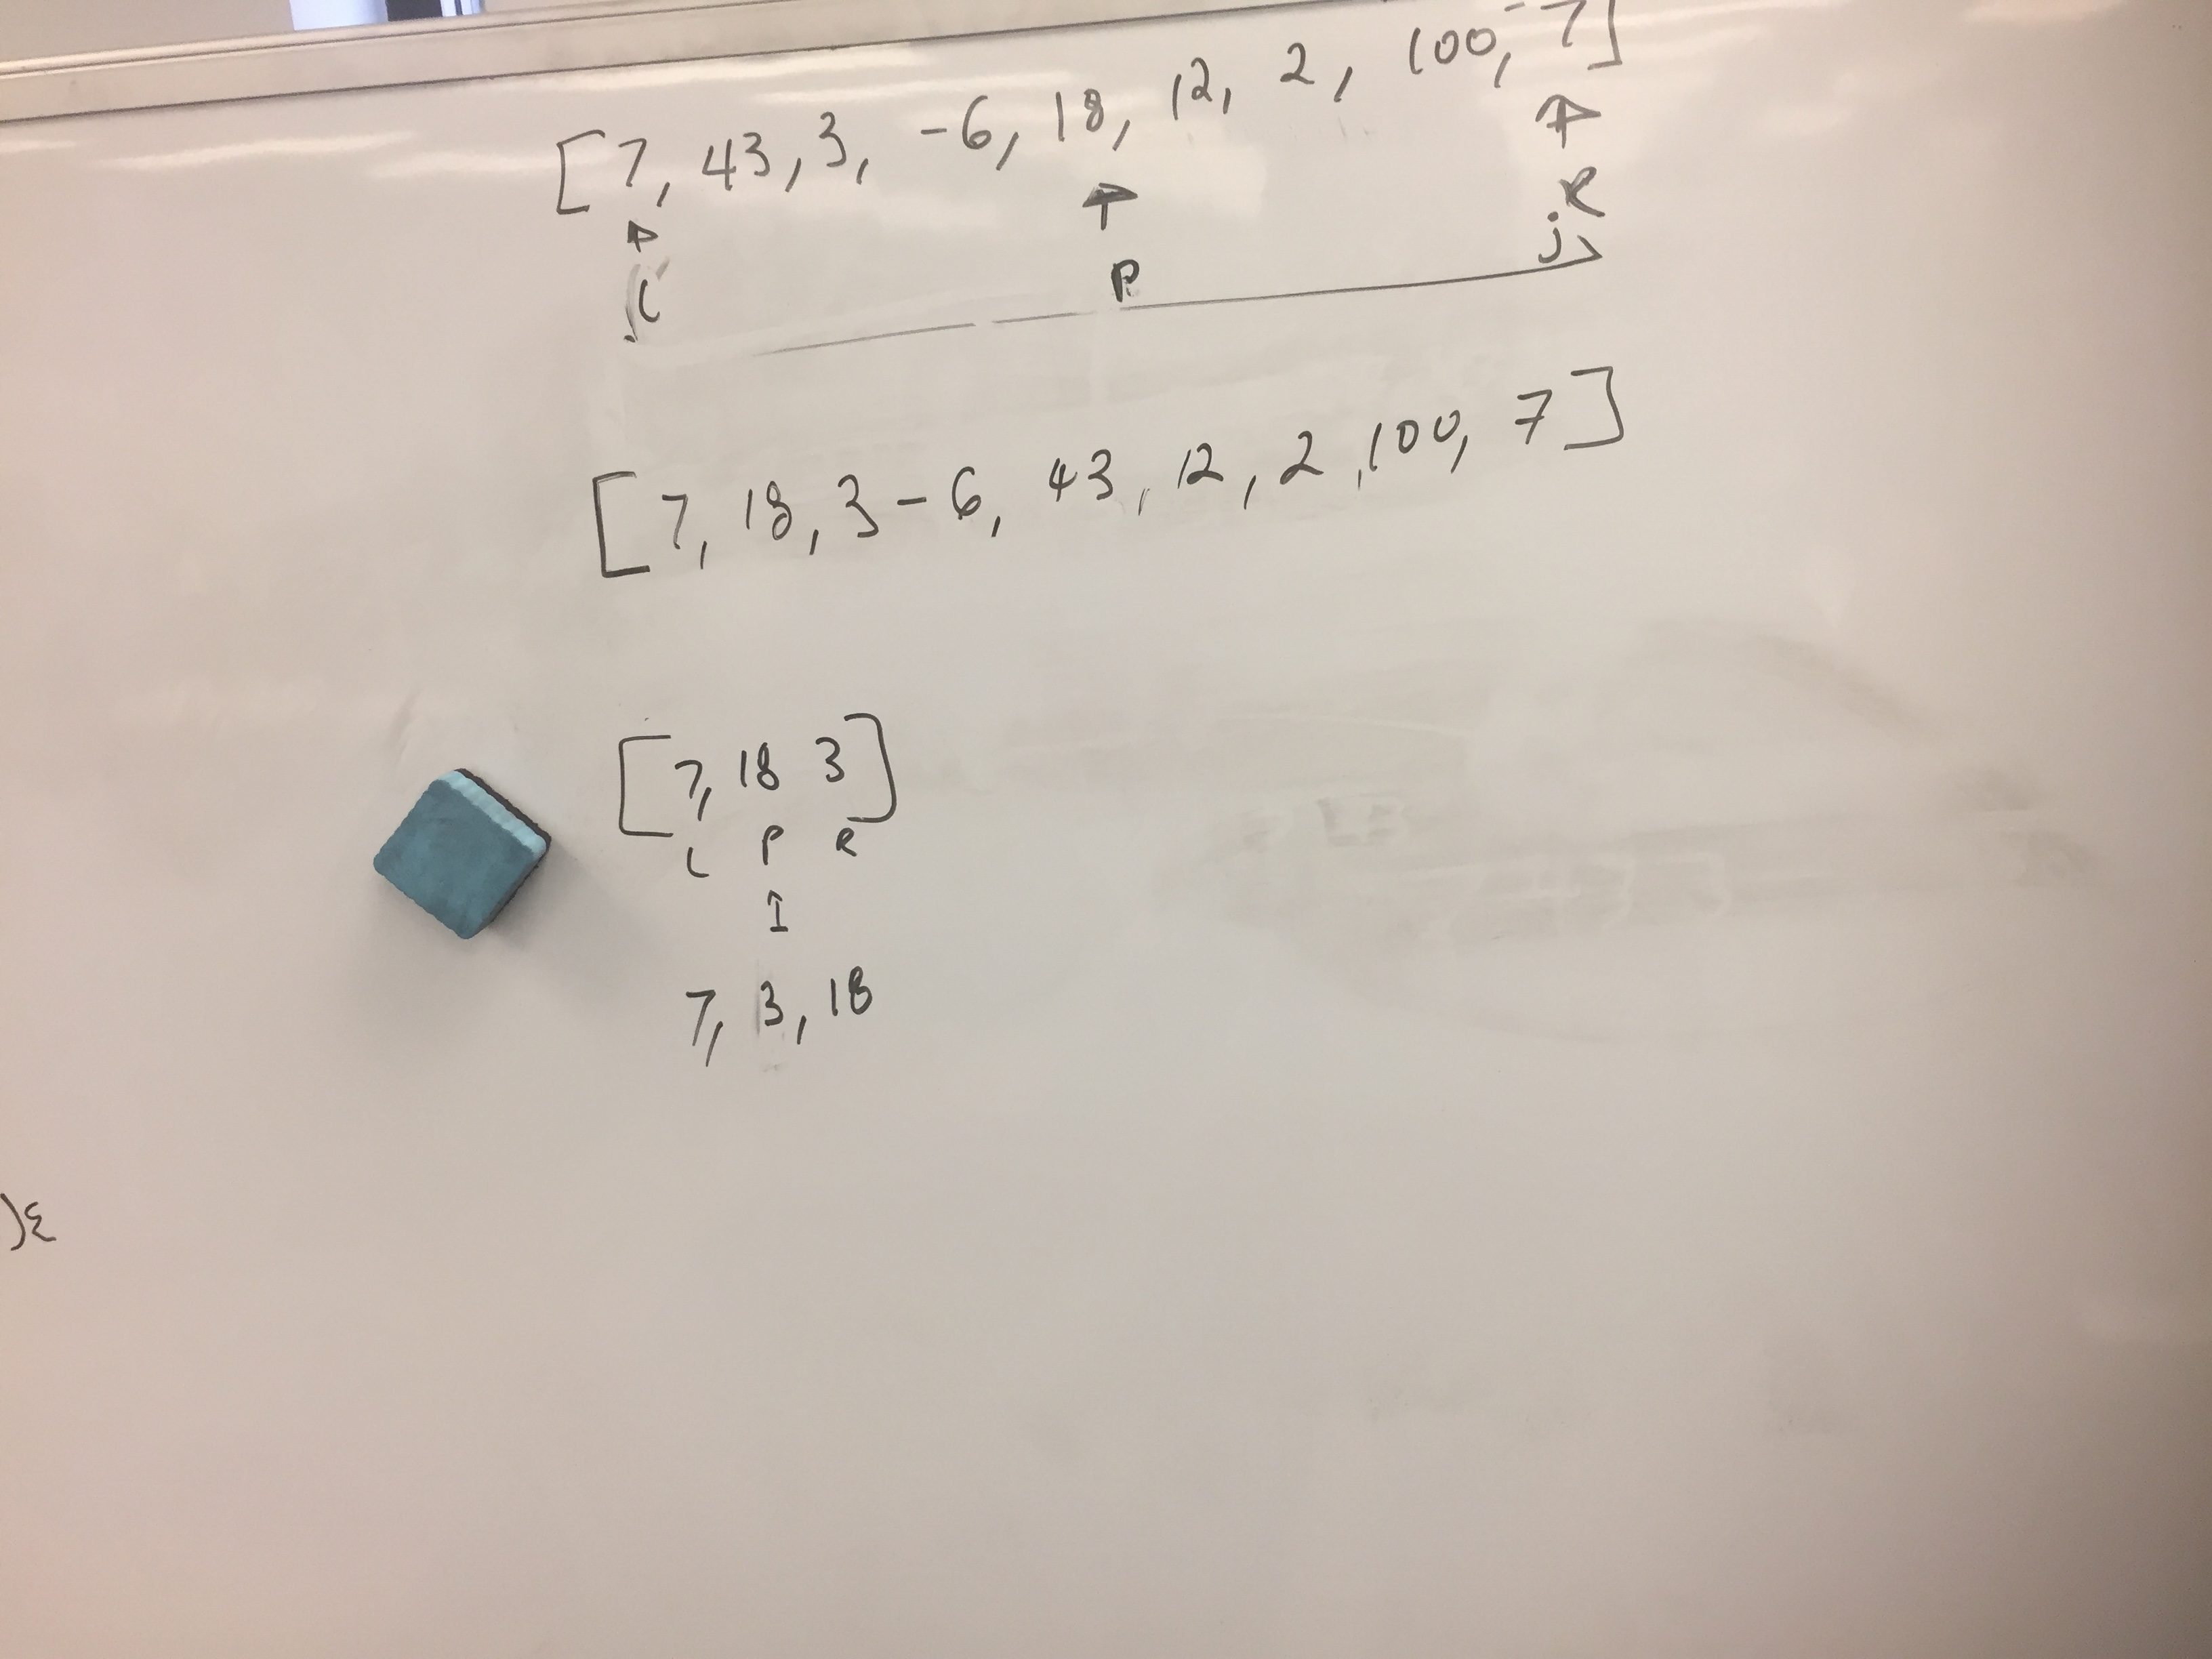 [7, 43, 3, -6, 18, 12, 2, 100, 7]
L P R
j
[7, 18, 3 -6, 43, 12, 2, 100, 7]
[7, 18 3]
L P R
I
7, 3, 18
){